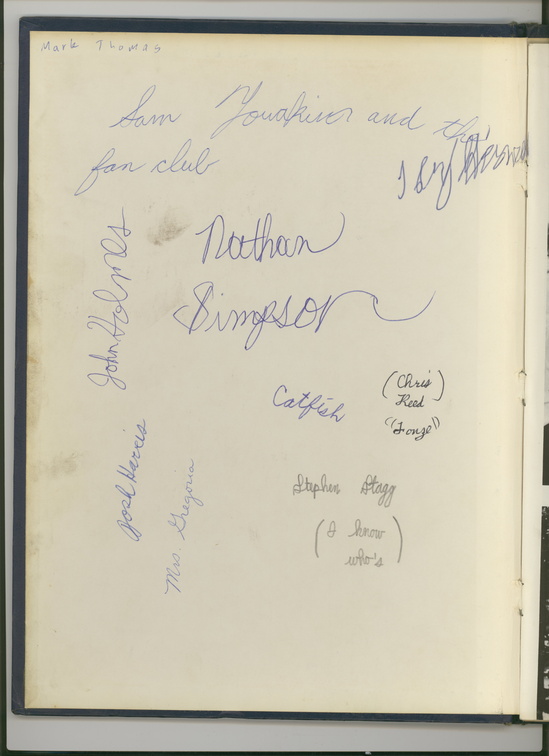 Mark Thomas
Sam Youakim and the
fan club
Nathan
Simpson
John Holmes
Catfish
(Chris
Reed)
"Fonze"
Josh Harris
Mrs. Gregoria
Stephen Stagg
(I know
who's)